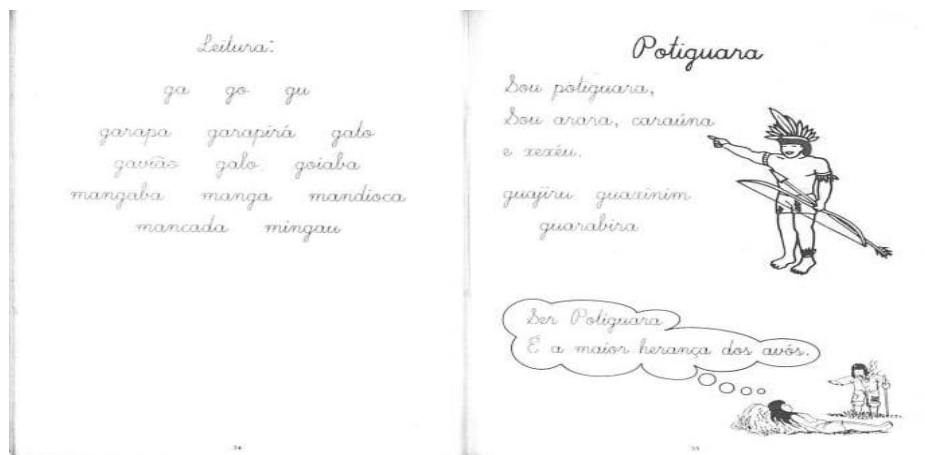 Leitura:
ga go gu
garapa garapirá gato
gavião galo goiaba
mangaba manga mandioca
mancada mingau
34
Potiguara
Sou potiguara,
Sou arara, caraúna
e xexéu.
guajiru guaxinim
guarabira
Ser Potiguara
É a maior herança dos avós.